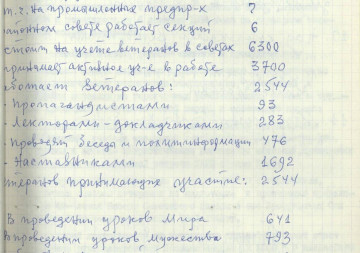 т.ч. на промышленных предпр-х 7
районном совете работает секций 6
стоит на учете ветеранов в советах 6300
принимает активное уч-е в работе 3700
ботает ветеранов: 2544
- Пропагандистами 93
- Лекторами-докладчиками 283
- Проводят беседы и политинформации 476
- Наставниками 1692
теранов принимающих участие: 2544
В проведении уроков Мира 641
В проведении уроков мужества 793